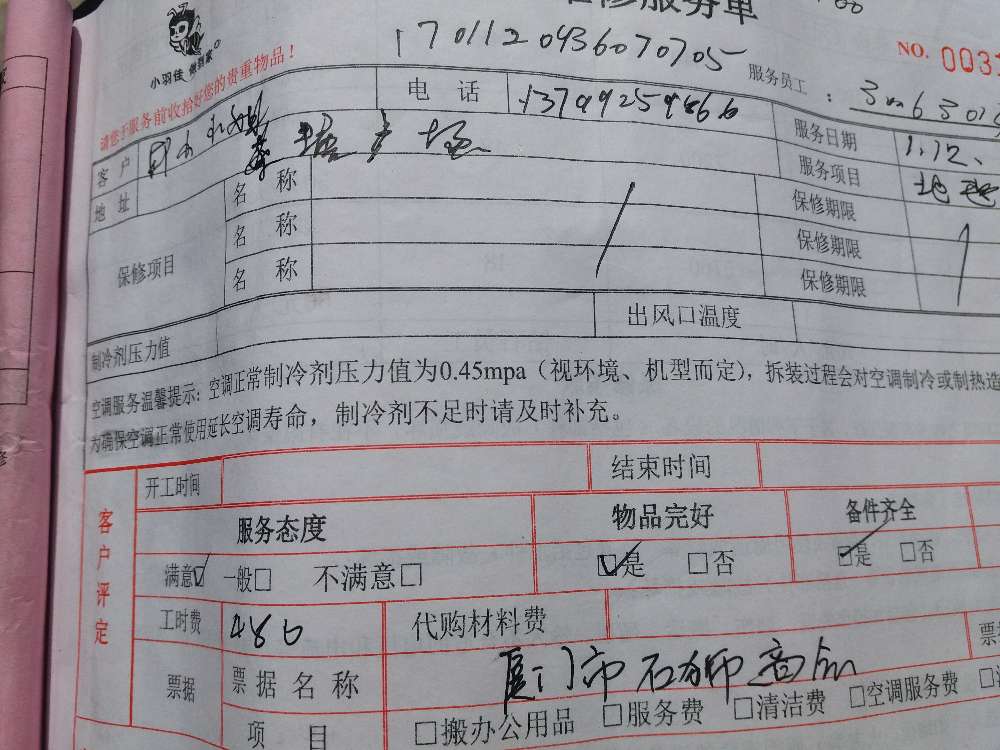 维修服务单
小羽佳 NO. 003
17011120436070705
请您于服务前收拾好您的贵重物品!
服务员工:
客户 电话 13799259866 服务日期 1.12.
地址 广场 服务项目
保修项目 名称 保修期限
名称 保修期限
名称 保修期限
制冷剂压力值 出风口温度
空调服务温馨提示:空调正常制冷剂压力值为0.45mpa(视环境、机型而定),拆装过程会对空调制冷或制热造
为确保空调正常使用延长空调寿命,制冷剂不足时请及时补充。
客户评定
开工时间 结束时间
服务态度 物品完好 备件齐全
满意☑ 一般□ 不满意□ ☑是 □否 ☑是 □否
工时费 486 代购材料费
票据 票据名称 厦门市石狮商会 票
项目 □搬办公用品 □服务费 □清洁费 □空调服务费